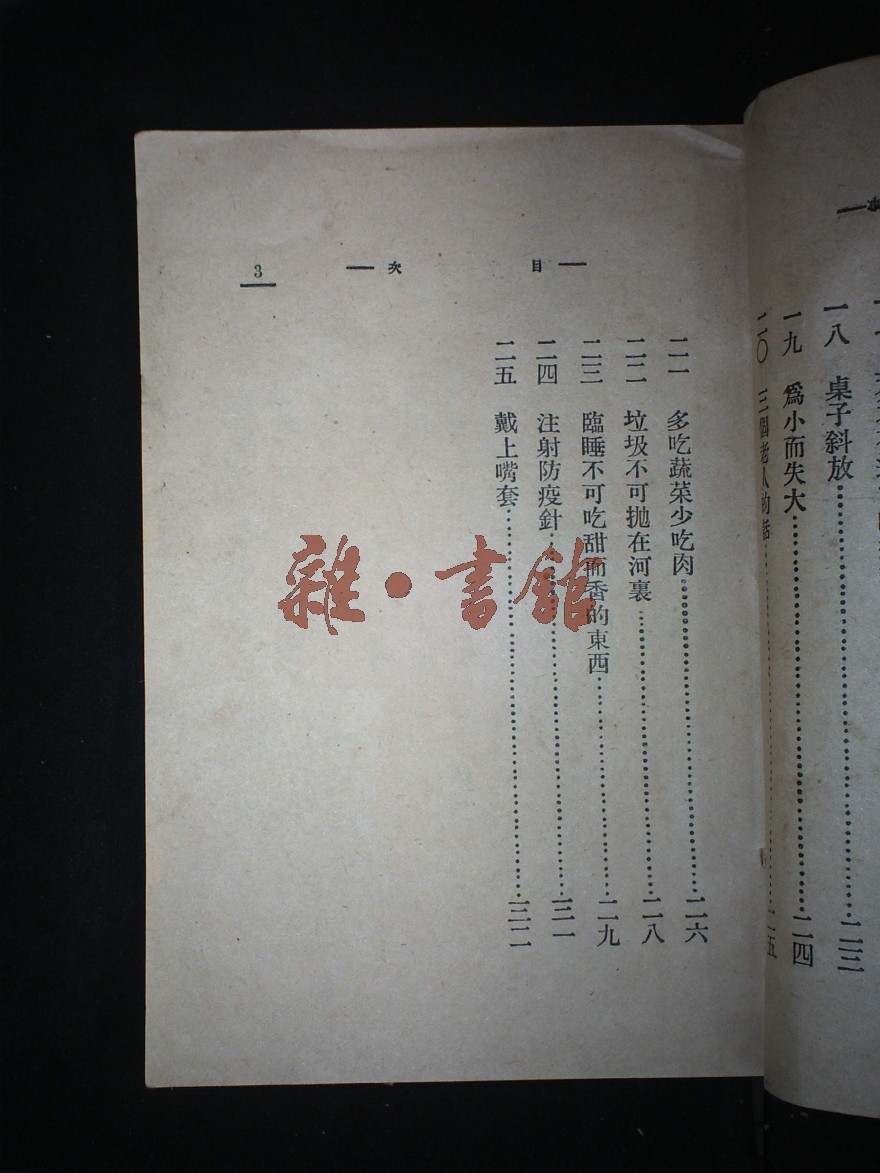 一八　桌子斜放……二三
一九　爲小而失大……二四
二〇　三個老人的話……二五
目　次　3
二一　多吃蔬菜少吃肉……二六
二二　垃圾不可抛在河裏……二八
二三　臨睡不可吃甜而香的東西……二九
二四　注射防疫針……三一
二五　戴上嘴套……三二
雜·書館